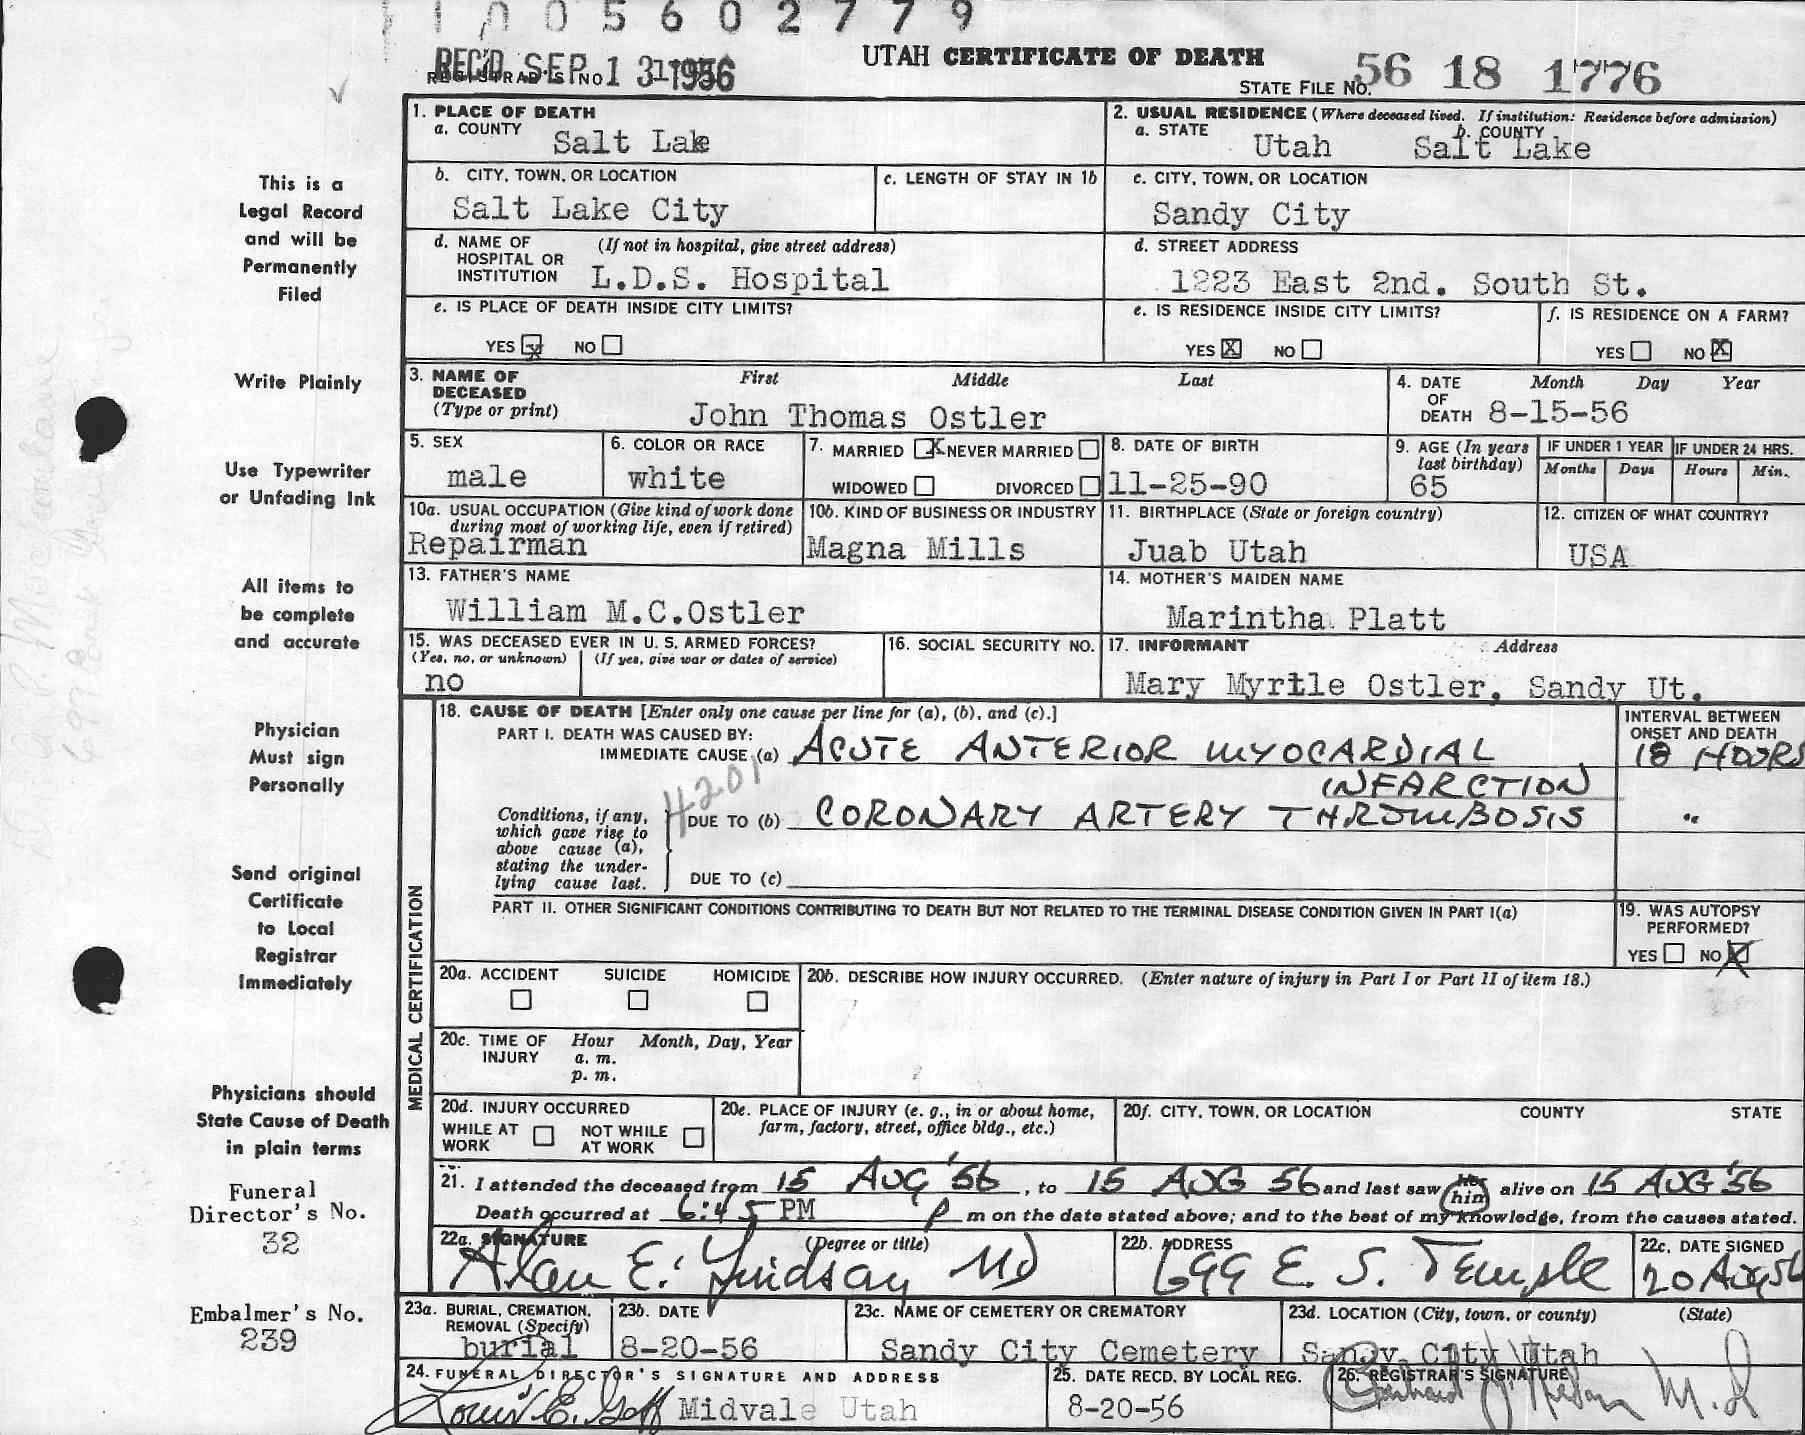 1 0 0 5 6 0 2 7 7 9
REC'D SEP 13 1956
REGISTRAR'S NO.
UTAH CERTIFICATE OF DEATH
STATE FILE NO. 56 18 1776
This is a
Legal Record
and will be
Permanently
Filed
Write Plainly
Use Typewriter
or Unfading Ink
All items to
be complete
and accurate
Physician
Must sign
Personally
Send original
Certificate
to Local
Registrar
Immediately
Physicians should
State Cause of Death
in plain terms
Funeral
Director's No.
32
Embalmer's No.
239
1. PLACE OF DEATH
a. COUNTY Salt Lake
2. USUAL RESIDENCE (Where deceased lived. If institution: Residence before admission)
a. STATE Utah b. COUNTY Salt Lake
b. CITY, TOWN, OR LOCATION
Salt Lake City
c. LENGTH OF STAY IN 1b
c. CITY, TOWN, OR LOCATION
Sandy City
d. NAME OF HOSPITAL OR INSTITUTION (If not in hospital, give street address)
L.D.S. Hospital
d. STREET ADDRESS
1223 East 2nd. South St.
e. IS PLACE OF DEATH INSIDE CITY LIMITS?
YES X NO
e. IS RESIDENCE INSIDE CITY LIMITS?
YES X NO
f. IS RESIDENCE ON A FARM?
YES NO X
3. NAME OF DECEASED (Type or print) First Middle Last
John Thomas Ostler
4. DATE OF DEATH Month Day Year
8-15-56
5. SEX
male
6. COLOR OR RACE
white
7. MARRIED X NEVER MARRIED
WIDOWED DIVORCED
8. DATE OF BIRTH
11-25-90
9. AGE (In years last birthday)
65
IF UNDER 1 YEAR
Months Days
IF UNDER 24 HRS.
Hours Min.
10a. USUAL OCCUPATION (Give kind of work done during most of working life, even if retired)
Repairman
10b. KIND OF BUSINESS OR INDUSTRY
Magna Mills
11. BIRTHPLACE (State or foreign country)
Juab Utah
12. CITIZEN OF WHAT COUNTRY?
USA
13. FATHER'S NAME
William M.C.Ostler
14. MOTHER'S MAIDEN NAME
Marintha Platt
15. WAS DECEASED EVER IN U. S. ARMED FORCES?
(Yes, no, or unknown) (If yes, give war or dates of service)
no
16. SOCIAL SECURITY NO.
17. INFORMANT Address
Mary Myrtle Ostler, Sandy Ut.
MEDICAL CERTIFICATION
18. CAUSE OF DEATH [Enter only one cause per line for (a), (b), and (c).]
PART I. DEATH WAS CAUSED BY:
IMMEDIATE CAUSE (a) ACUTE ANTERIOR MYOCARDIAL
INFARCTION
INTERVAL BETWEEN ONSET AND DEATH
18 HOURS
4201
Conditions, if any, which gave rise to above cause (a), stating the underlying cause last.
DUE TO (b) CORONARY ARTERY THROMBOSIS "
DUE TO (c)
PART II. OTHER SIGNIFICANT CONDITIONS CONTRIBUTING TO DEATH BUT NOT RELATED TO THE TERMINAL DISEASE CONDITION GIVEN IN PART I(a)
19. WAS AUTOPSY PERFORMED?
YES NO X
20a. ACCIDENT SUICIDE HOMICIDE
20b. DESCRIBE HOW INJURY OCCURRED. (Enter nature of injury in Part I or Part II of item 18.)
20c. TIME OF INJURY Hour Month, Day, Year
a. m.
p. m.
20d. INJURY OCCURRED
WHILE AT WORK NOT WHILE AT WORK
20e. PLACE OF INJURY (e. g., in or about home, farm, factory, street, office bldg., etc.)
20f. CITY, TOWN, OR LOCATION COUNTY STATE
21. I attended the deceased from 15 AUG '56, to 15 AUG 56 and last saw her him alive on 15 AUG '56
Death occurred at 6:45 PM P m on the date stated above; and to the best of my knowledge, from the causes stated.
22a. SIGNATURE (Degree or title)
Alan E. Lindsay MD
22b. ADDRESS
699 E. S. Temple
22c. DATE SIGNED
20 Aug 56
23a. BURIAL, CREMATION, REMOVAL (Specify)
burial
23b. DATE
8-20-56
23c. NAME OF CEMETERY OR CREMATORY
Sandy City Cemetery
23d. LOCATION (City, town, or county) (State)
Sandy City Utah
24. FUNERAL DIRECTOR'S SIGNATURE AND ADDRESS
Louis E. Goff Midvale Utah
25. DATE RECD. BY LOCAL REG.
8-20-56
26. REGISTRAR'S SIGNATURE
M.D